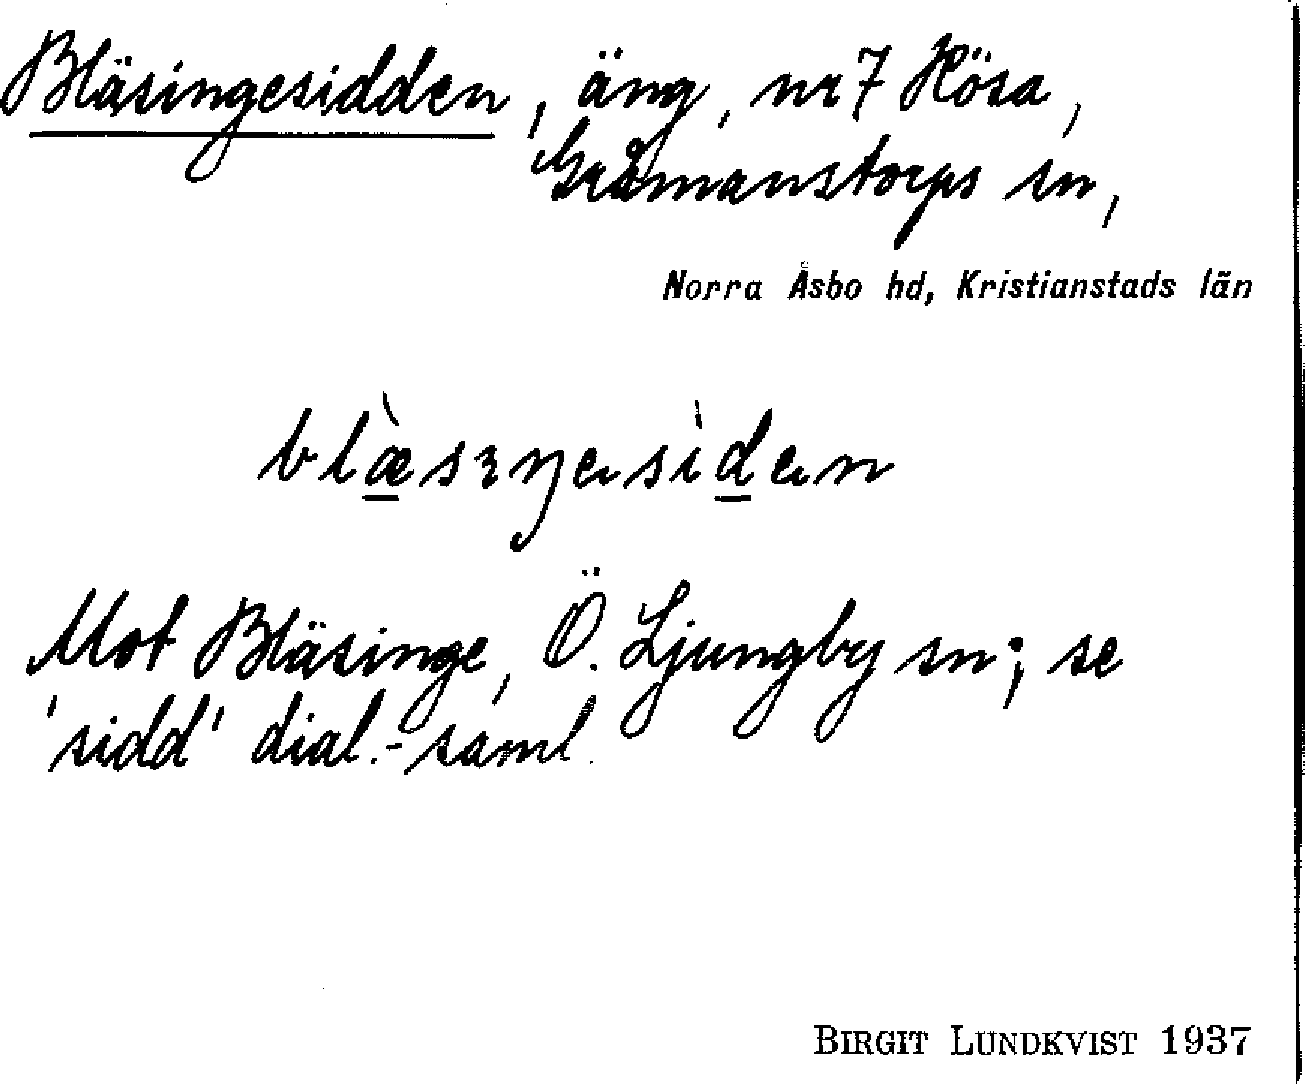 Bläsingesidden, äng, nr 7 Hösa,
Gråmanstorps sn,
Norra Åsbo hd, Kristianstads län
Mot Bläsinge, Ö. Ljungby sn; se
'sidd' dial.-saml.
BIRGIT LUNDKVIST 1937